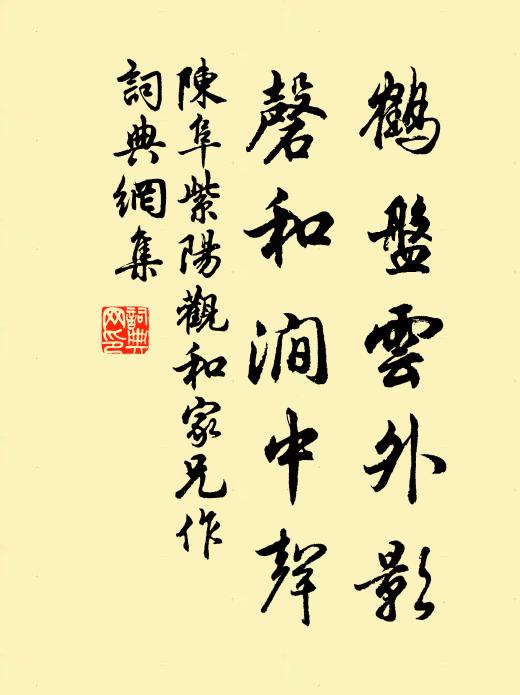 鶴盤雲外影
磬和澗中聲
陳阜紫陽觀和家兄作
詞典網集
詞典
网印